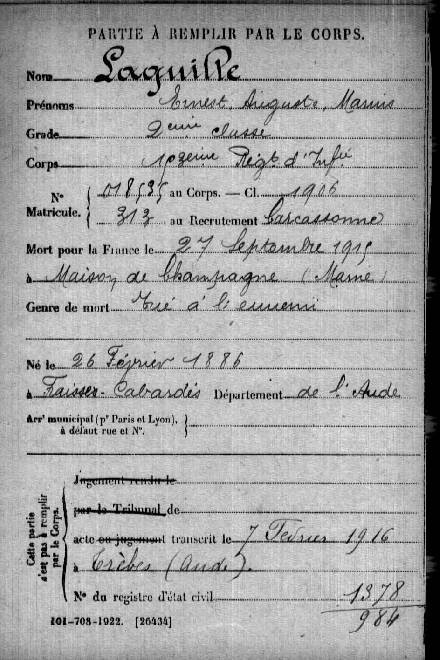 PARTIE À REMPLIR PAR LE CORPS.
Nom Laguille
Prénoms Ernest, Auguste, Marius
Grade 2eme classe
Corps Régt d'Infie
N° Matricule. { 018535 au Corps. — Cl. 1906
313 au Recrutement Carcassonne
Mort pour la France le 27 Septembre 1915
à Maison de Champagne (Marne)
Genre de mort Tué à l'ennemi
Né le 26 Février 1886
à Fraisse-Cabardès Département de l'Aude
Arrt municipal (pr Paris et Lyon), à défaut rue et N°. }
Cette partie n'est pas à remplir par le Corps.
Jugement rendu le
par le Tribunal de
acte ou jugement transcrit le 7 Février 1916
à Trèbes (Aude).
N° du registre d'état civil 1378
984
101-708-1922. [26434]